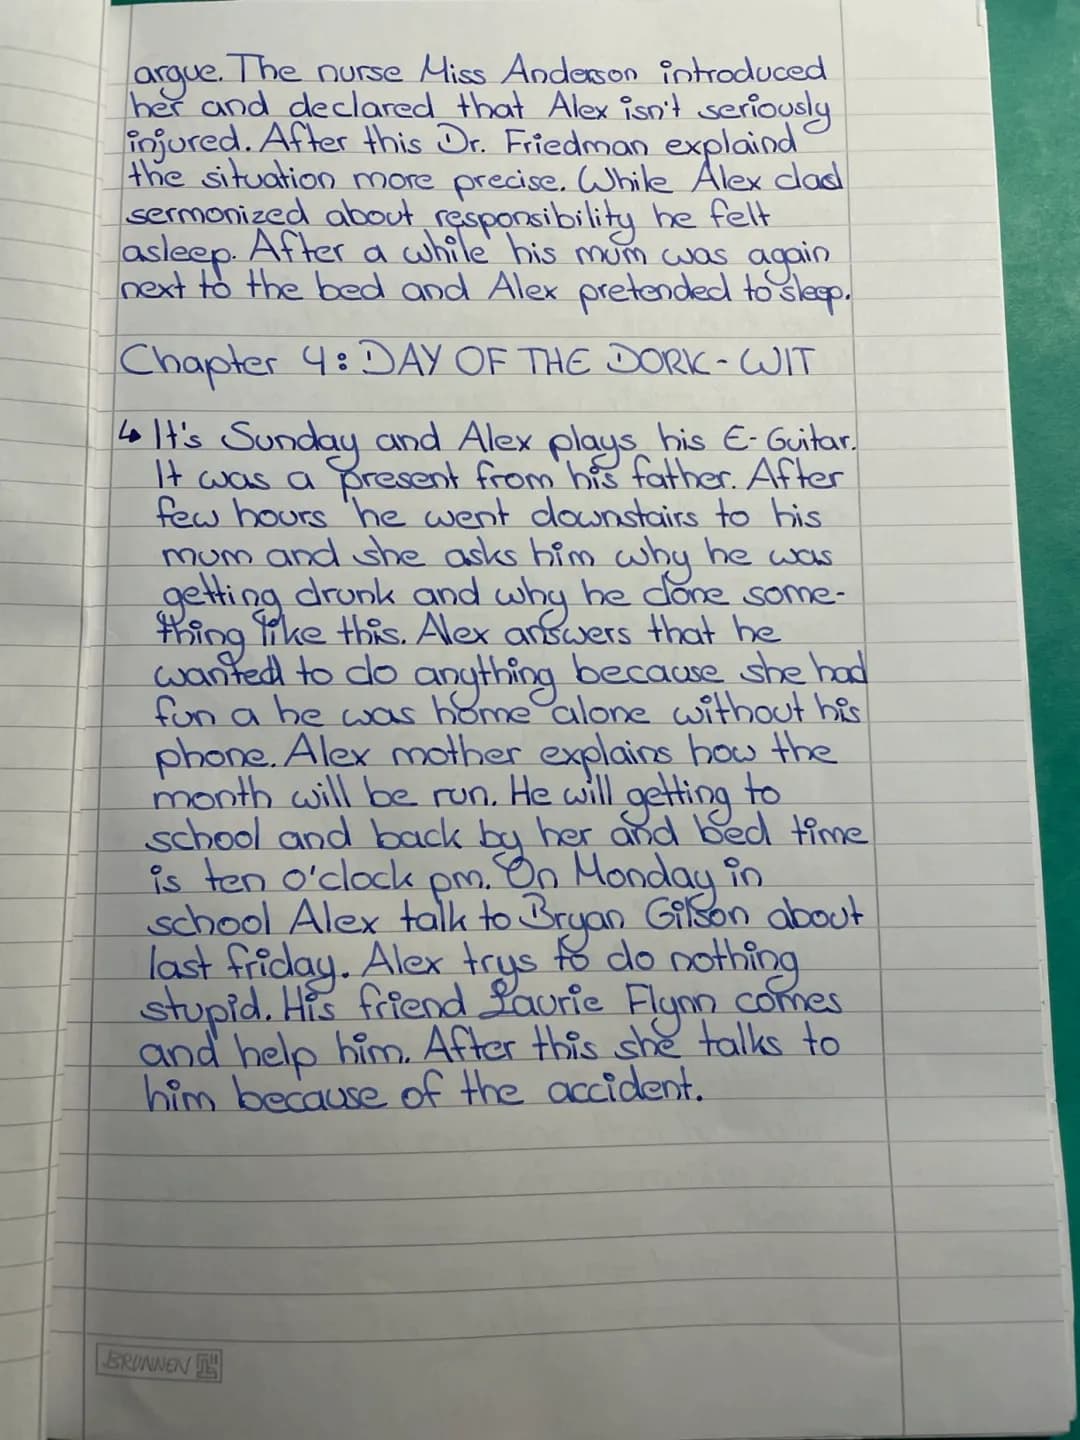 argue. The nurse Miss Anderson introduced
her and declared that Alex isn't seriously
injured. After this Dr. Friedman explaind
the situation more precise. While Alex dad
sermonized about responsibility he felt
asleep. After a while his mum was again
next to the bed and Alex pretended to sleep.
Chapter 4: DAY OF THE DORK-WIT
↳ It's Sunday and Alex plays his E-Guitar.
It was a present from his father. After
few hours he went downstairs to his
mum and she asks him why he was
getting drunk and why he done some-
thing like this. Alex answers that he
wanted to do anything because she had
fun a he was home alone without his
phone. Alex mother explains how the
month will be run. He will getting to
school and back by her and bed time
is ten o'clock pm. On Monday in
school Alex talk to Bryan Gilson about
last friday. Alex trys to do nothing
stupid. His friend Laurie Flynn comes
and help him. After this she talks to
him because of the accident.
BRUNNEN